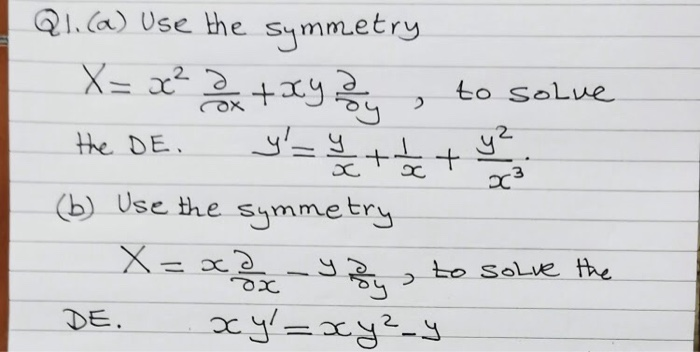 Q1. (a) Use the symmetry
X = x² ∂/∂x + xy ∂/∂y , to solve
the DE. y' = y/x + 1/x + y²/x³.
(b) Use the symmetry
X = x ∂/∂x - y ∂/∂y , to solve the
DE. xy' = xy² - y